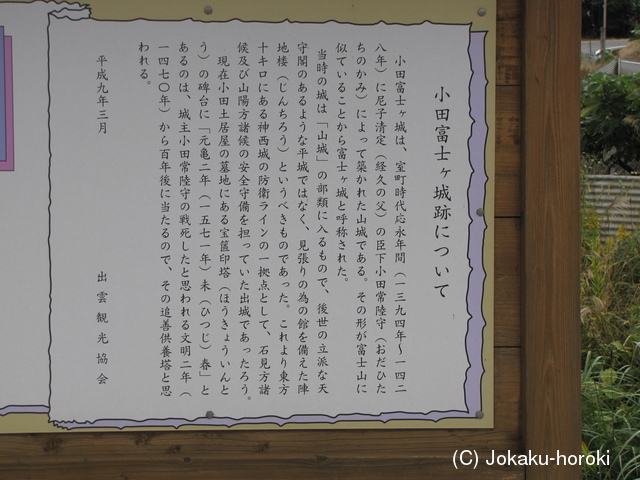 小田富士ヶ城跡について
小田富士ヶ城は、室町時代応永年間（一三九四年～一四二
八年）に尼子清定（経久の父）の臣下小田常陸守（おだひた
ちのかみ）によって築かれた山城である。その形が富士山に
似ていることから富士ヶ城と呼称された。
当時の城は「山城」の部類に入るもので、後世の立派な天
守閣のあるような平城ではなく、見張りの為の館を備えた陣
地楼（じんちろう）というべきものであった。これより東方
十キロにある神西城の防衛ラインの一拠点として、石見方諸
候及び山陽方諸候の安全守備を担っていた出城であったろう。
現在小田土居屋の墓地にある宝篋印塔（ほうきょういんと
う）の碑台に「元亀二年（一五七一年）未（ひつじ）春」と
あるのは、城主小田常陸守の戦死したと思われる文明二年（
一四七〇年）から百年後に当たるので、その追善供養塔と思
われる。
平成九年三月
出雲観光協会
(C) Jokaku-horoki